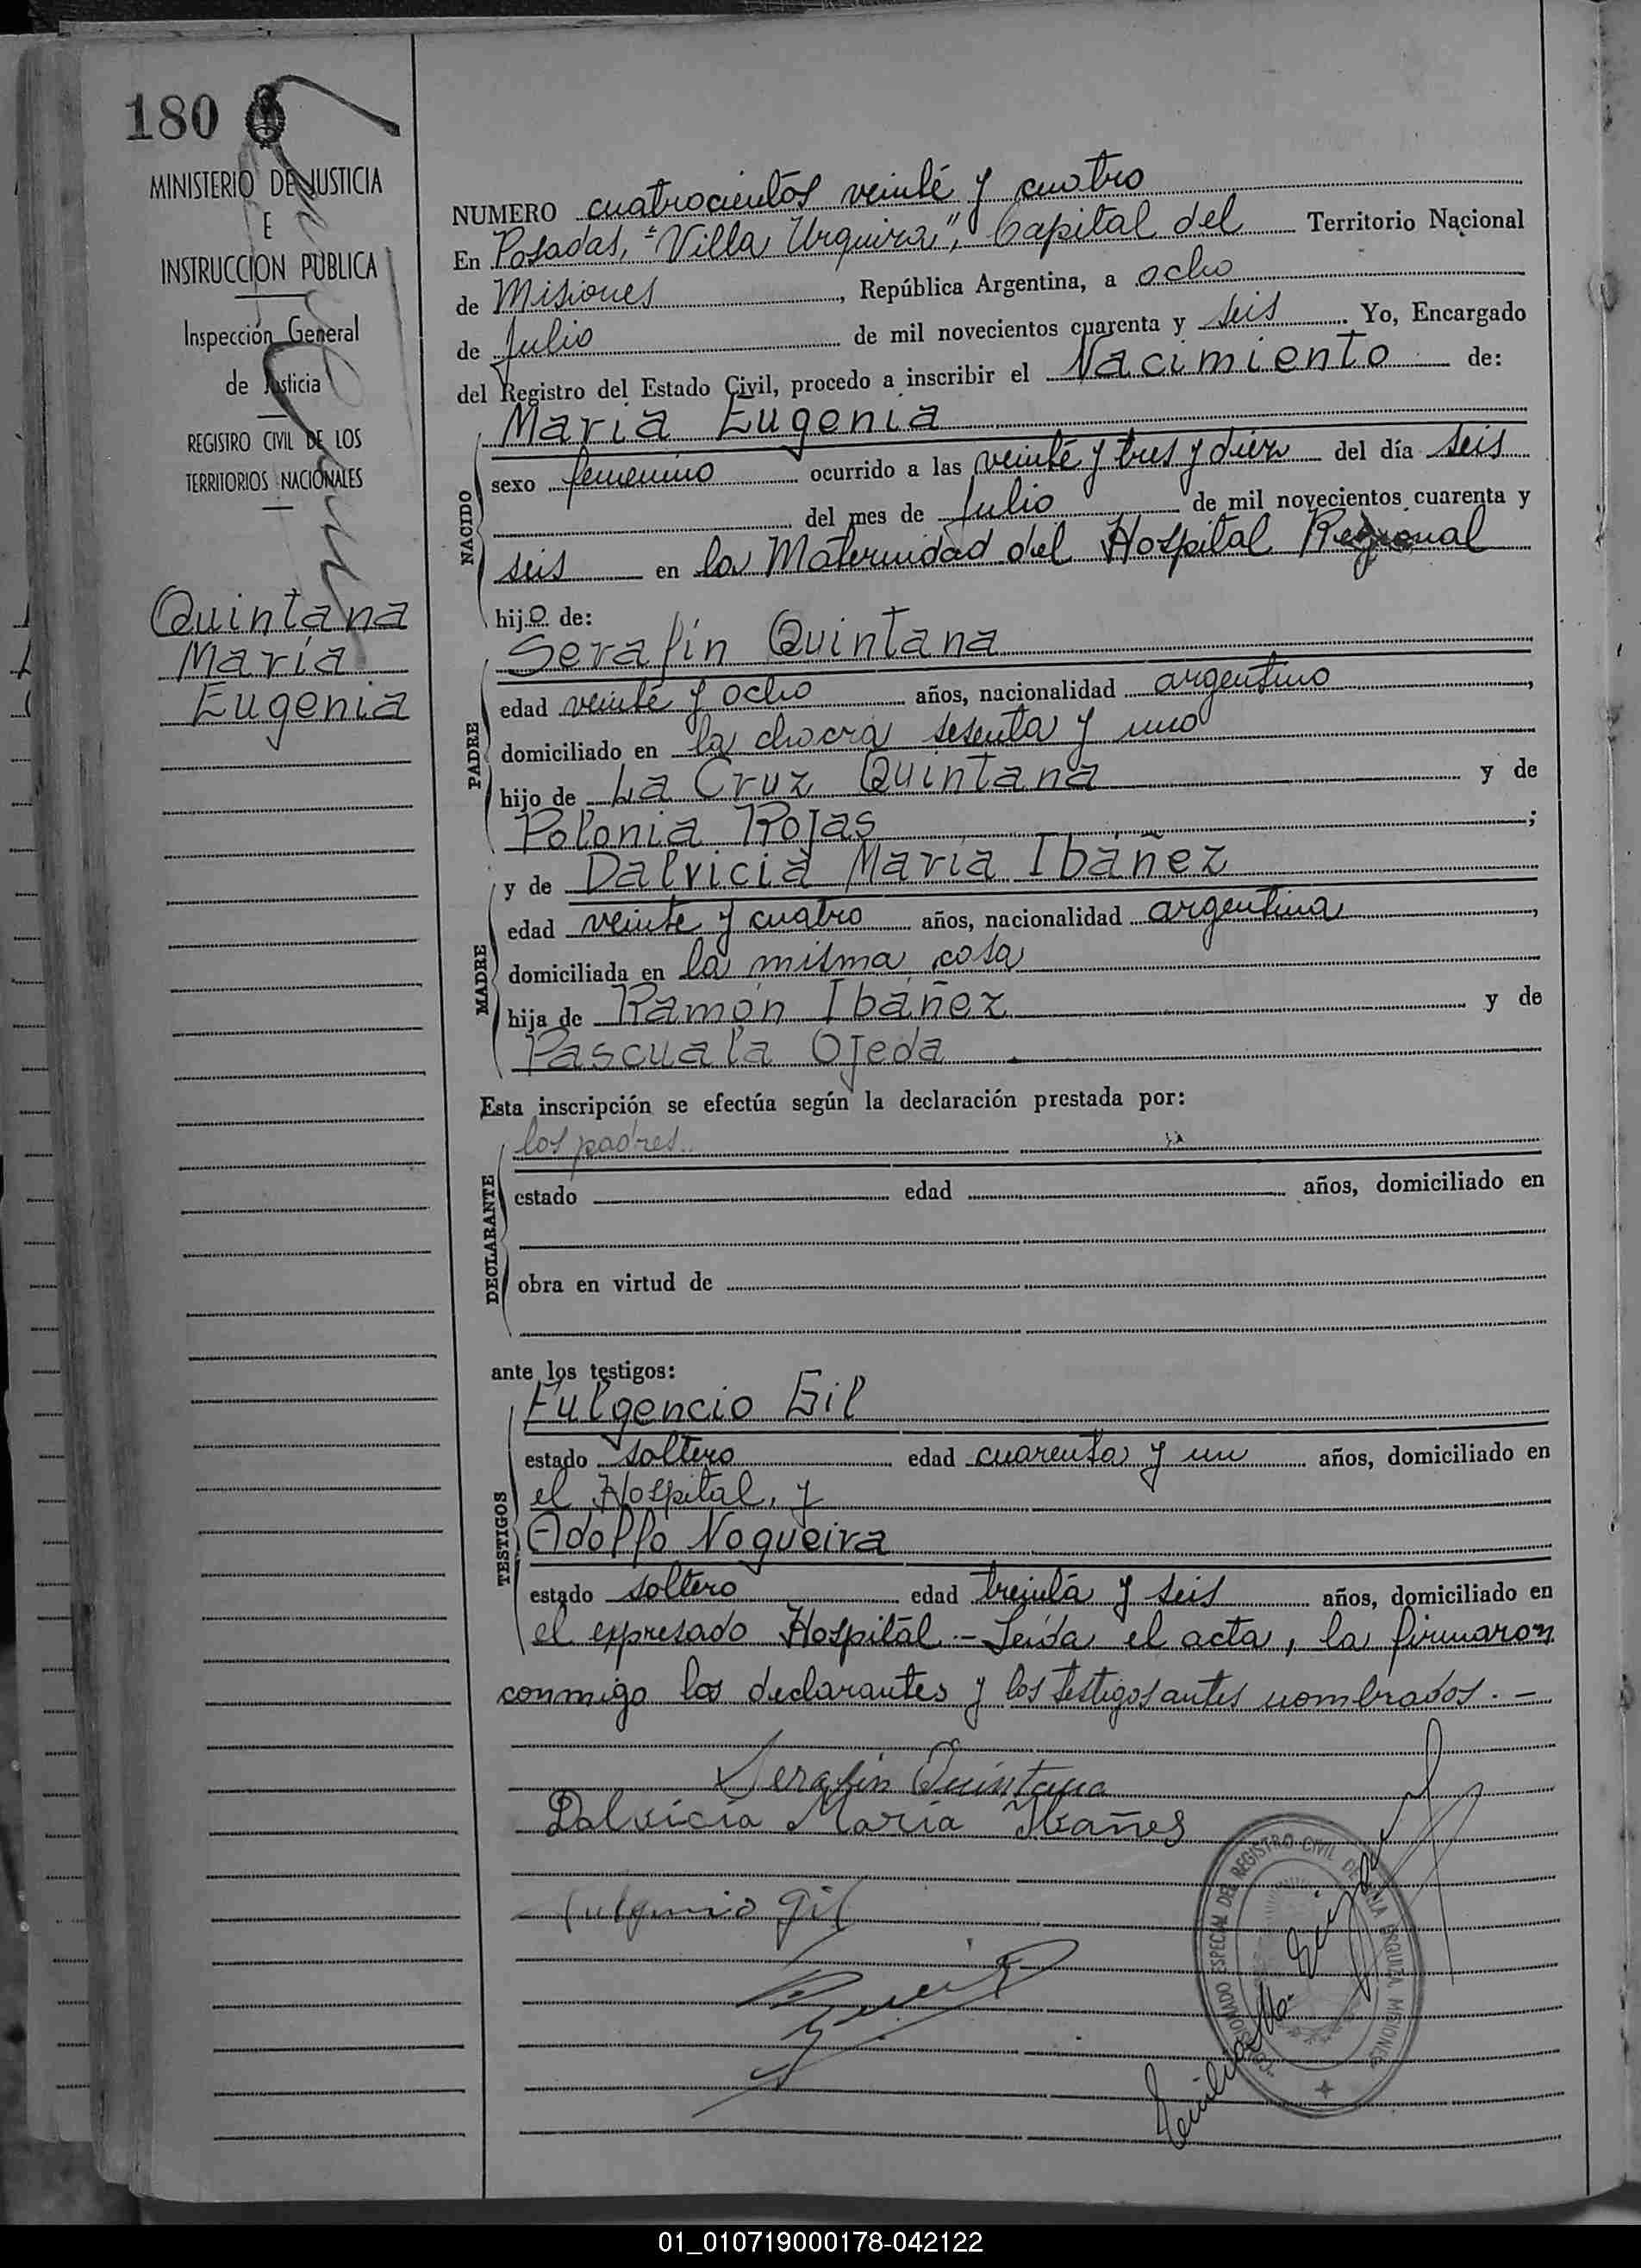 180
MINISTERIO DE JUSTICIA
E
INSTRUCCION PUBLICA
Inspección General
de Justicia
REGISTRO CIVIL DE LOS
TERRITORIOS NACIONALES
Quintana
María
Eugenia
NUMERO cuatrocientos veinte y cuatro
En Posadas, "Villa Urquiza", Capital del Territorio Nacional
de Misiones, República Argentina, a ocho
de Julio de mil novecientos cuarenta y seis. Yo, Encargado
del Registro del Estado Civil, procedo a inscribir el Nacimiento de:
María Eugenia
NACIDO
sexo femenino ocurrido a las veinte y tres y diez del día seis
del mes de Julio de mil novecientos cuarenta y
seis en la Maternidad del Hospital Regional
hijo de:
Serafín Quintana
PADRE
edad veinte y ocho años, nacionalidad argentino,
domiciliado en la chacra sesenta y uno
hijo de La Cruz Quintana y de
Polonia Rojas;
y de Dalvicia María Ibáñez
MADRE
edad veinte y cuatro años, nacionalidad argentina,
domiciliada en la misma casa
hija de Ramón Ibáñez y de
Pascuala Ojeda.
Esta inscripción se efectúa según la declaración prestada por:
los padres.
DECLARANTE
estado edad años, domiciliado en
obra en virtud de
ante los testigos:
Fulgencio Gil
TESTIGOS
estado soltero edad cuarenta y un años, domiciliado en
el Hospital, y
Adolfo Nogueira
estado soltero edad treinta y seis años, domiciliado en
el expresado Hospital.- Leída el acta, la firmaron
conmigo los declarantes y los testigos antes nombrados.-
Serafin Quintana
Dalvicia Maria Ibañes
Fulgencio Gil
COMISIONADO ESPECIAL DEL REGISTRO CIVIL DE VILLA URQUIZA MISIONES
01_010719000178-042122